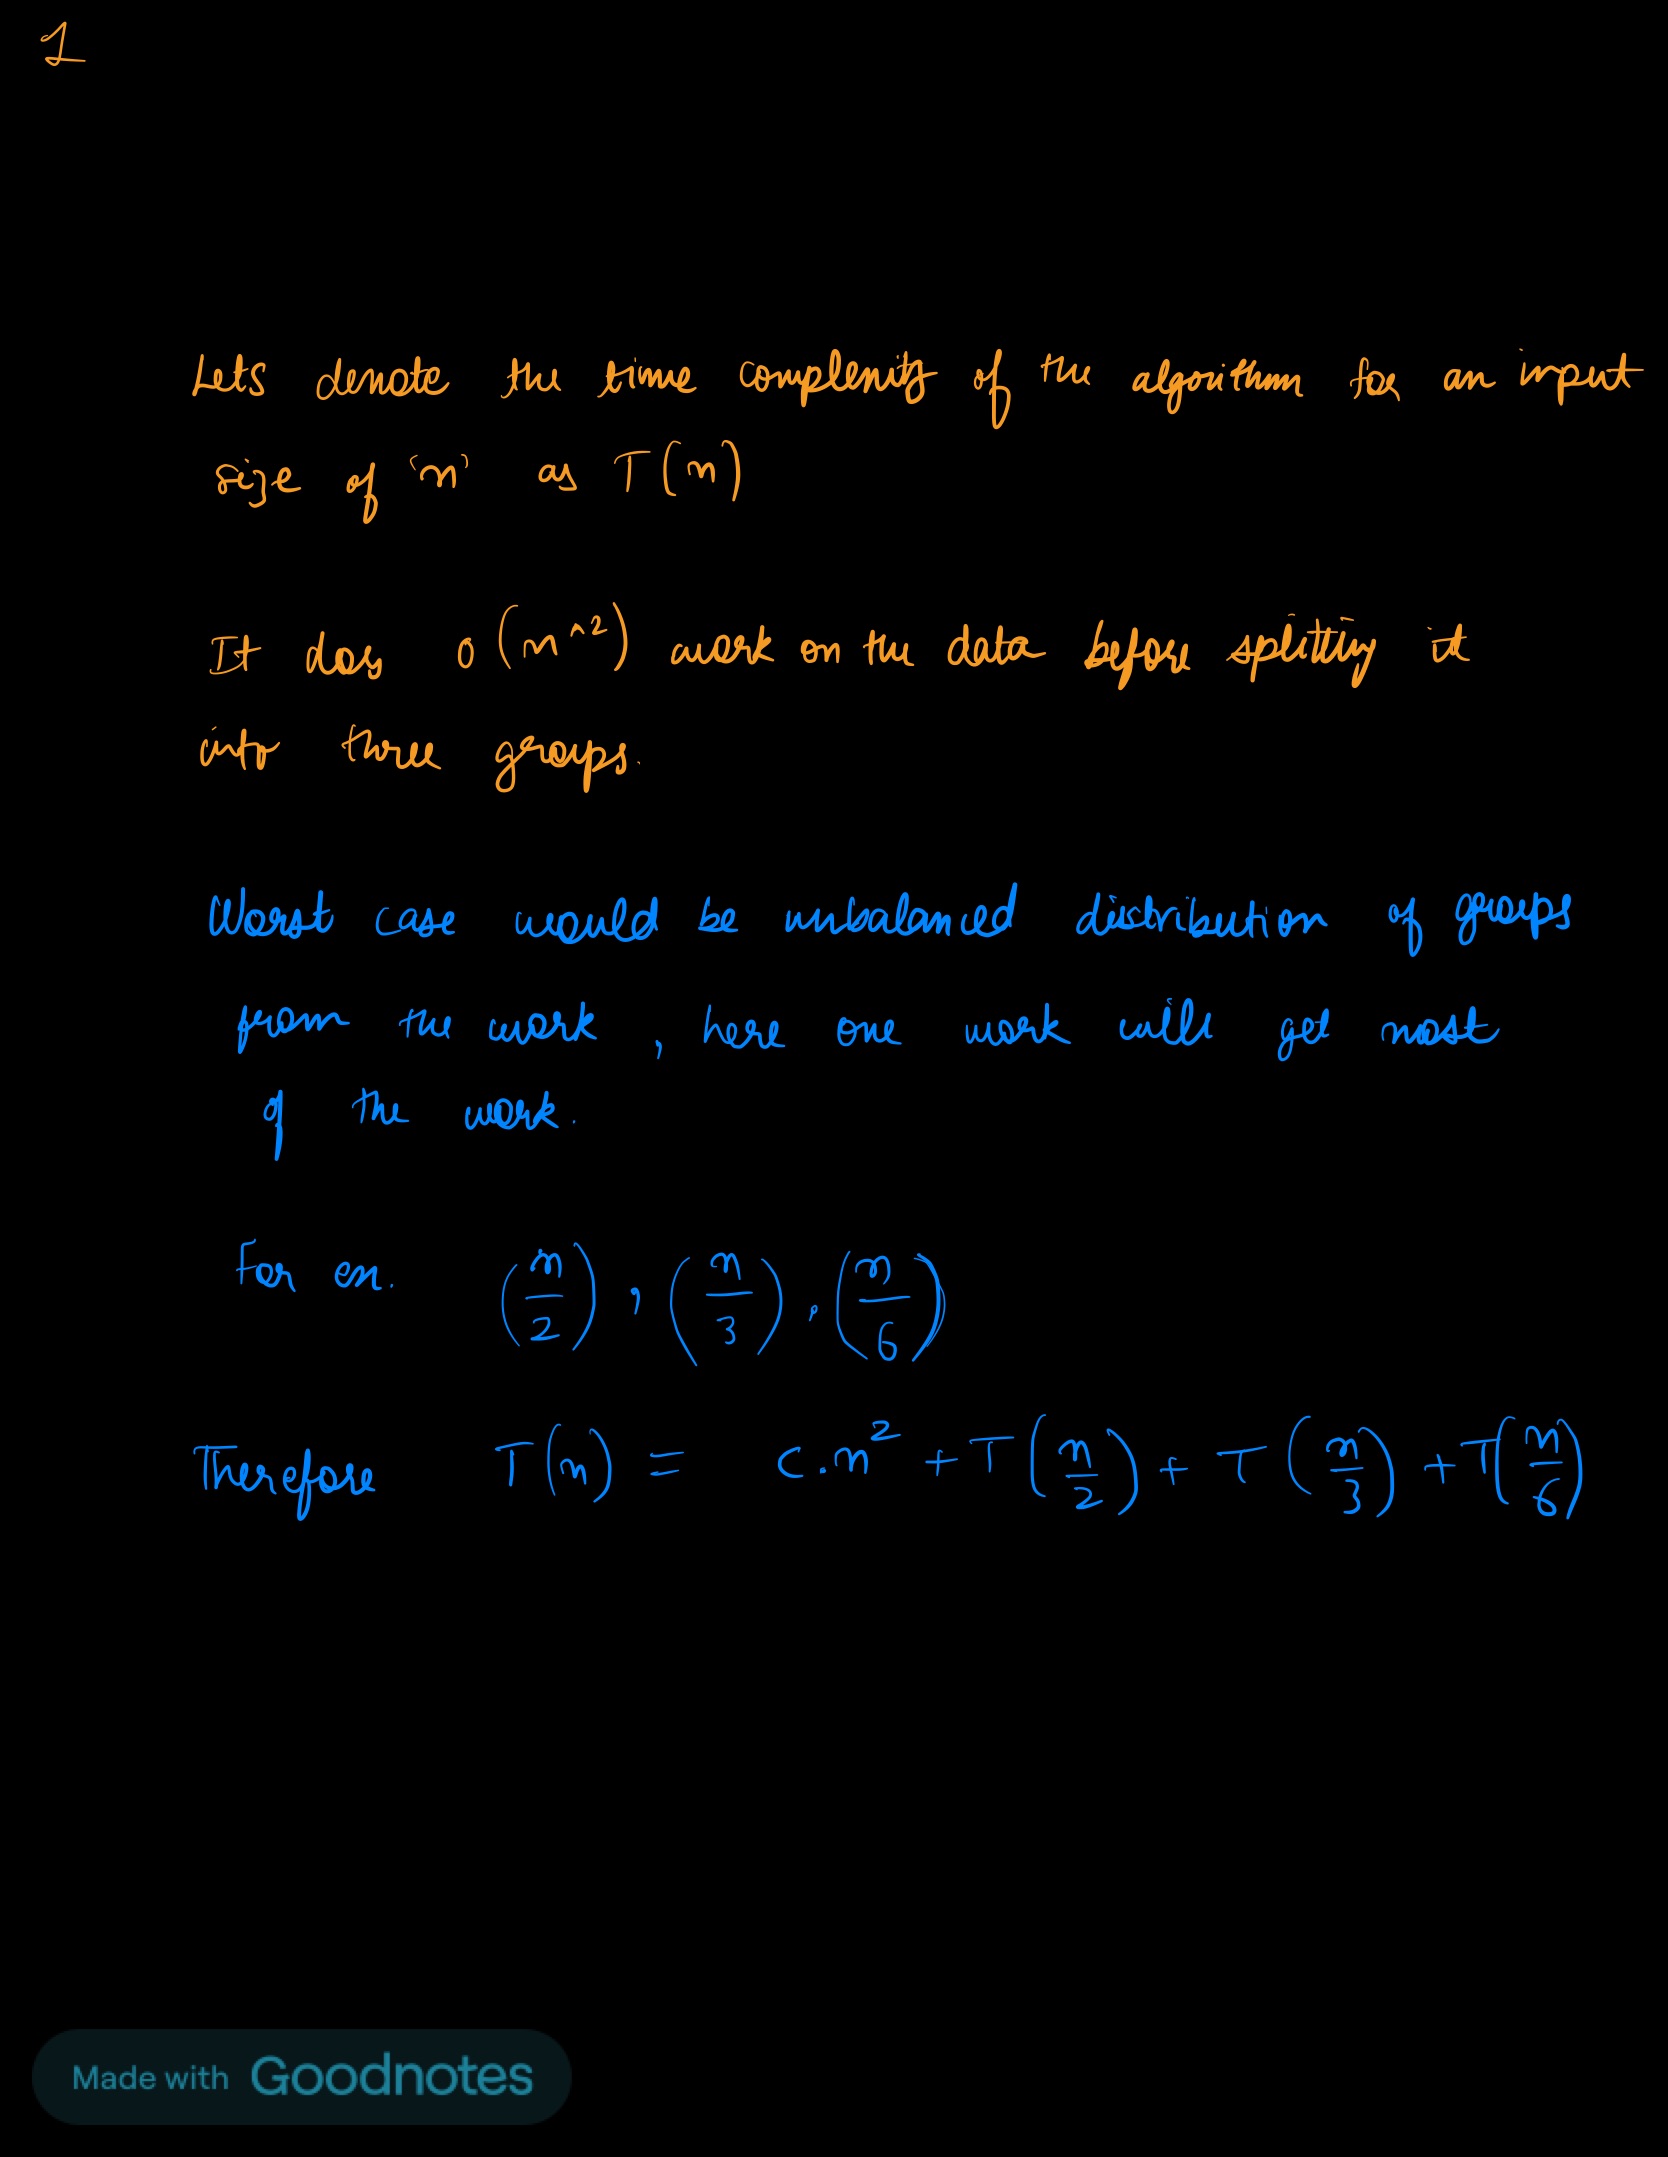 1
Lets denote the time complexity of the algorithm for an input
size of 'n' as T(n)
It does O(n^2) work on the data before splitting it
into three groups.
Worst case would be unbalanced distribution of groups
from the work, here one work will get most
of the work.
For ex. (n/2), (n/3), (n/6)
Therefore T(n) = c.n² + T(n/2) + T(n/3) + T(n/6)
Made with Goodnotes